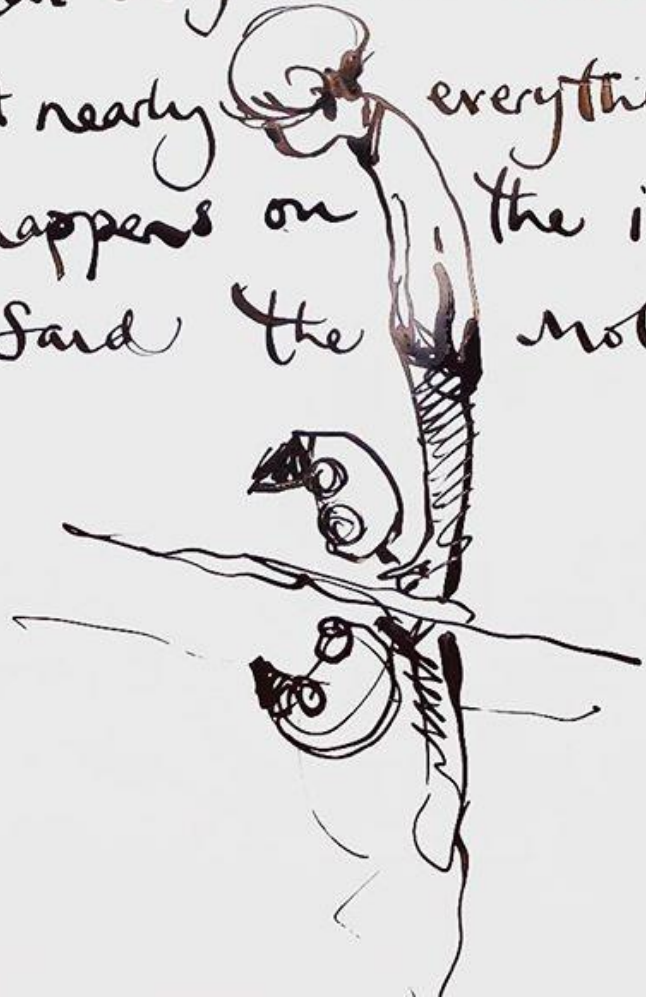 t nearly everythi
happens on the i
Said the Mol